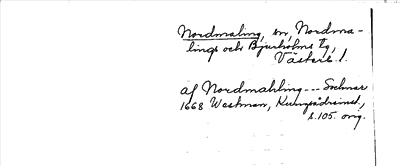 Nordmaling, sn, Nordma-
lings och Bjurholms tg,
Västerb. l.
af Nordmahling --- Sochnar
1668 Westman, Kungsådreinst.,
s. 105. orig.